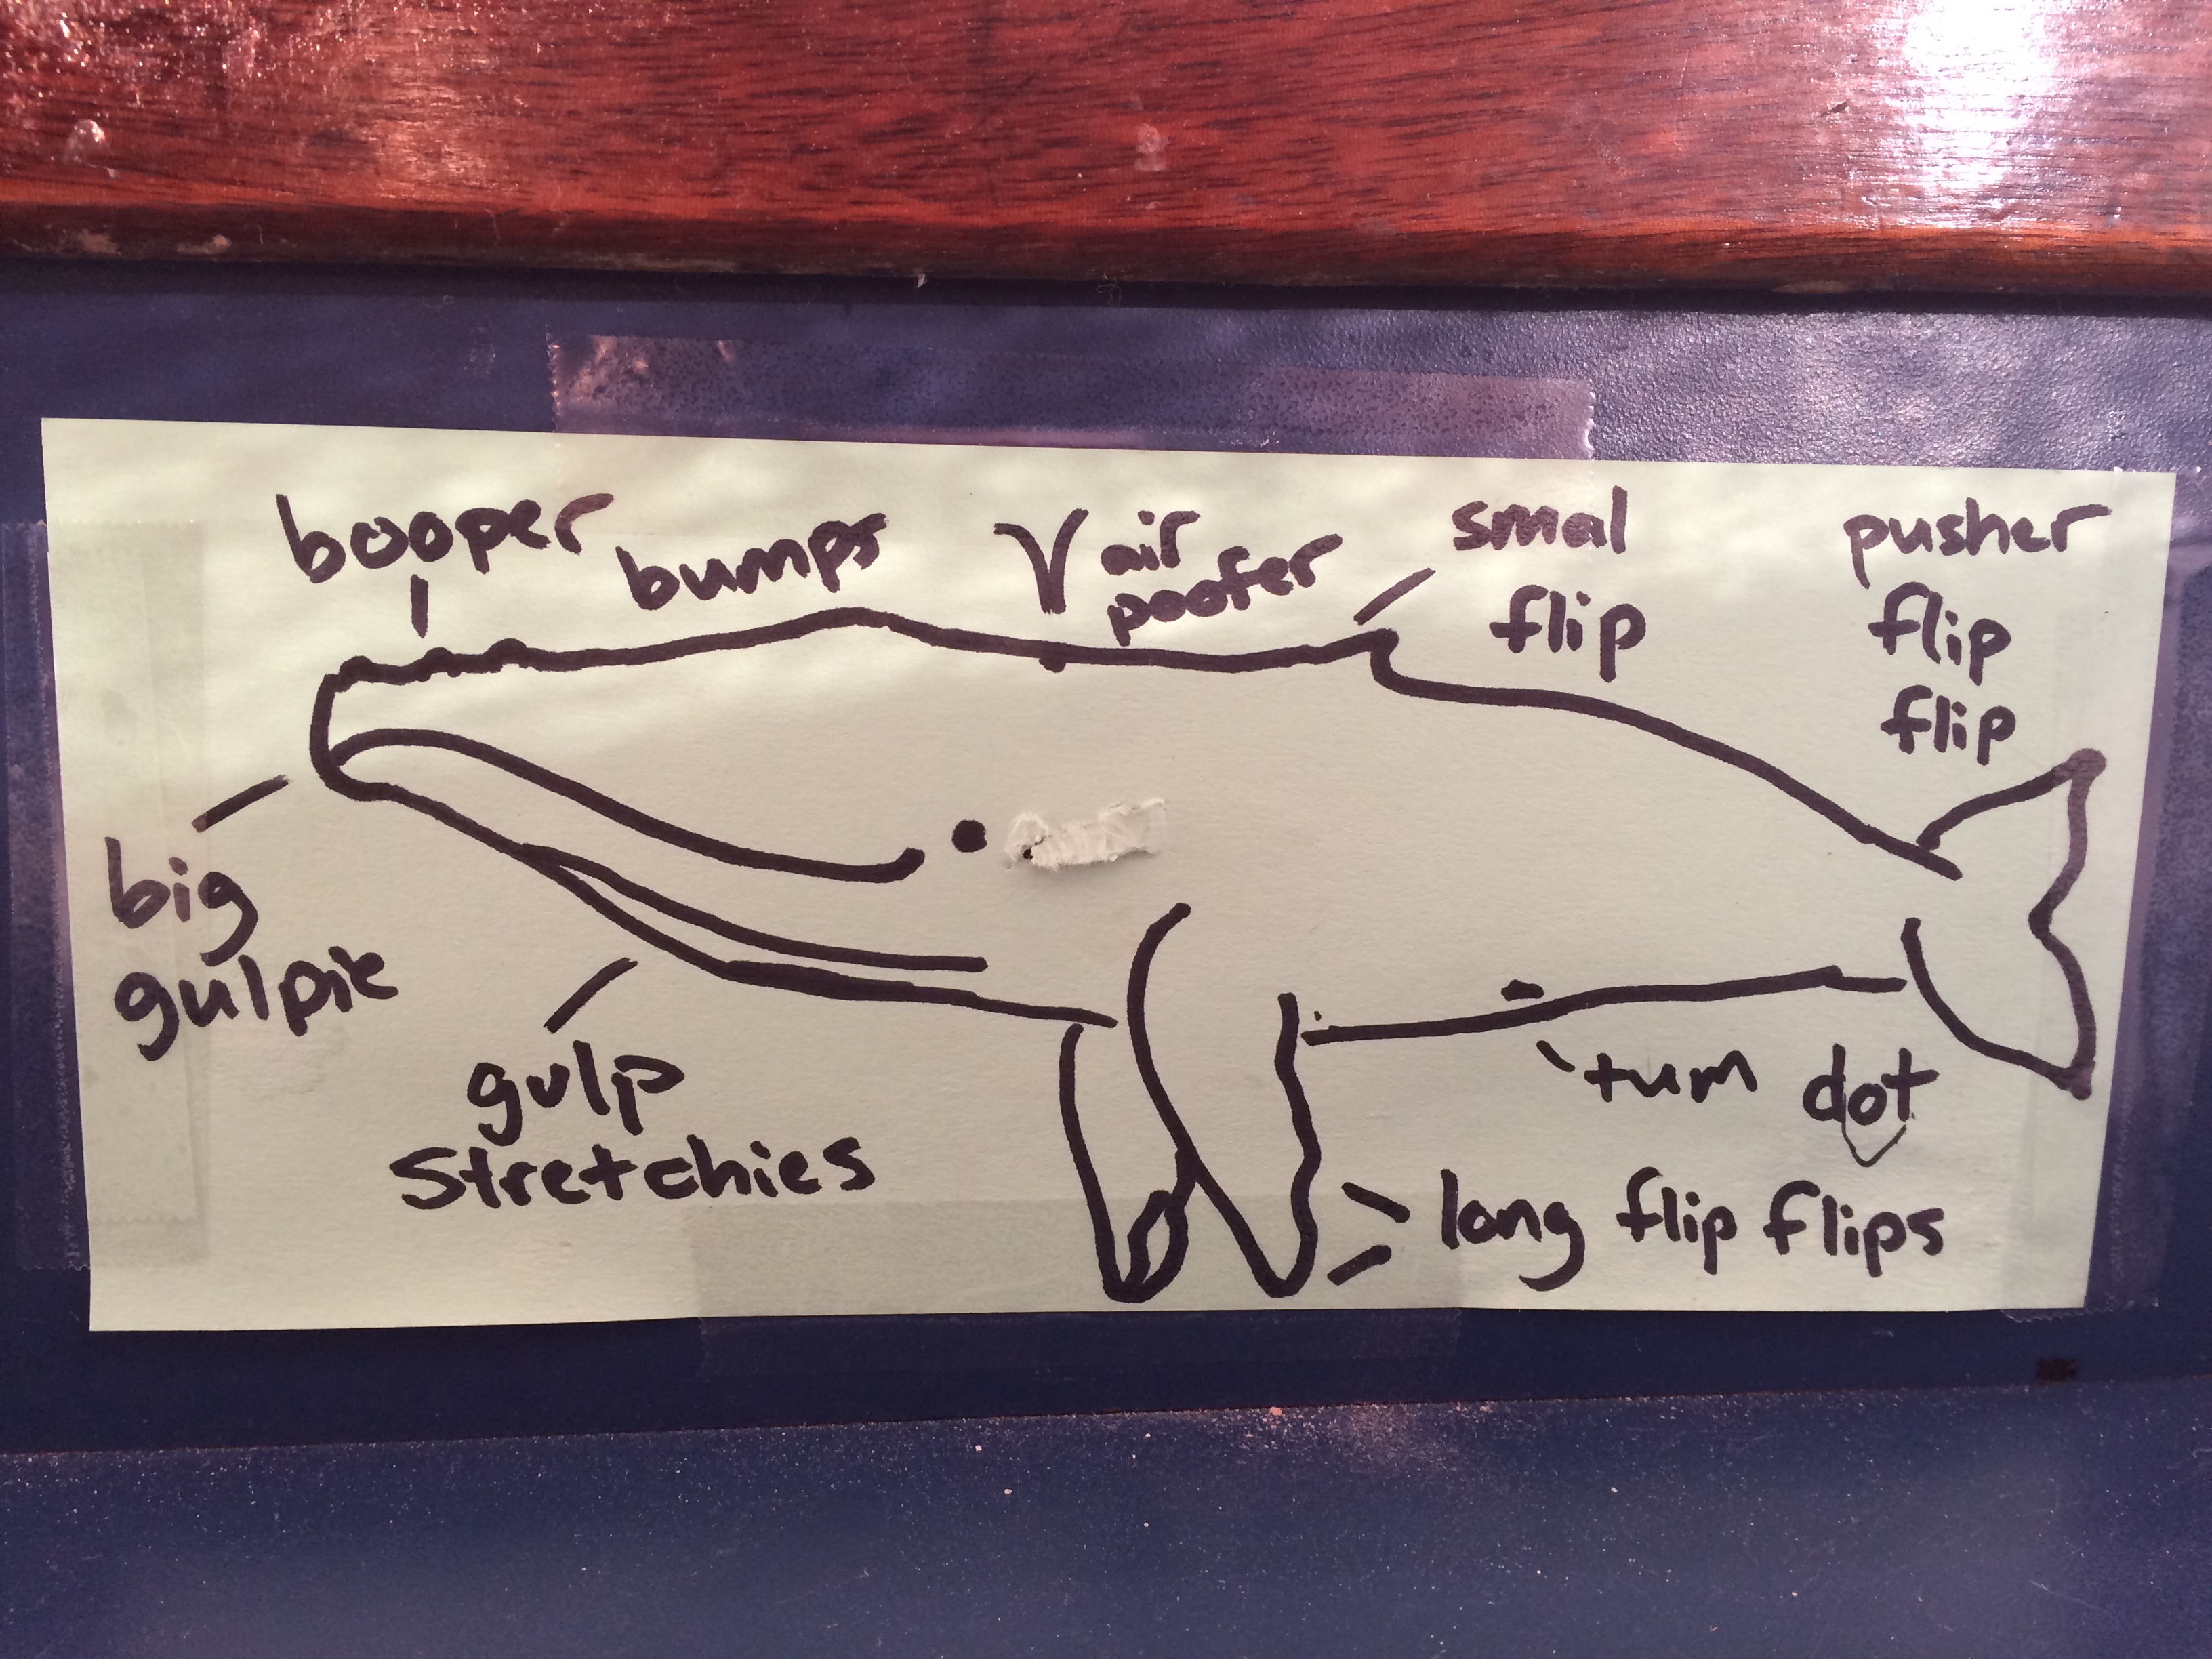 booper
bumps
air
poofer
smal
flip
pusher
flip
flip
big
gulpie
gulp
stretchies
tum dot
long flip flips